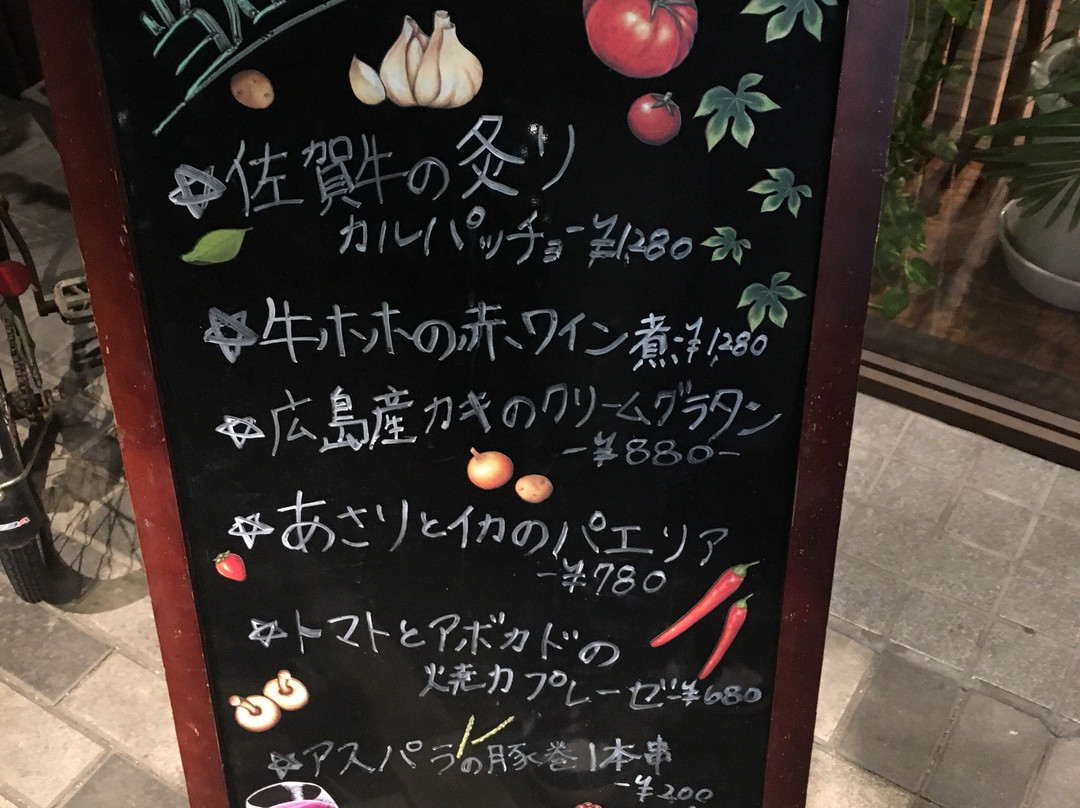 ☆佐賀牛の炙り
カルパッチョ-¥1,280
☆牛ホホの赤ワイン煮-¥1,280
☆広島産カキのクリームグラタン
-¥880-
☆あさりとイカのパエリア
-¥780
☆トマトとアボカドの
焼カプレーゼ-¥680
☆アスパラの豚巻1本串
-¥200